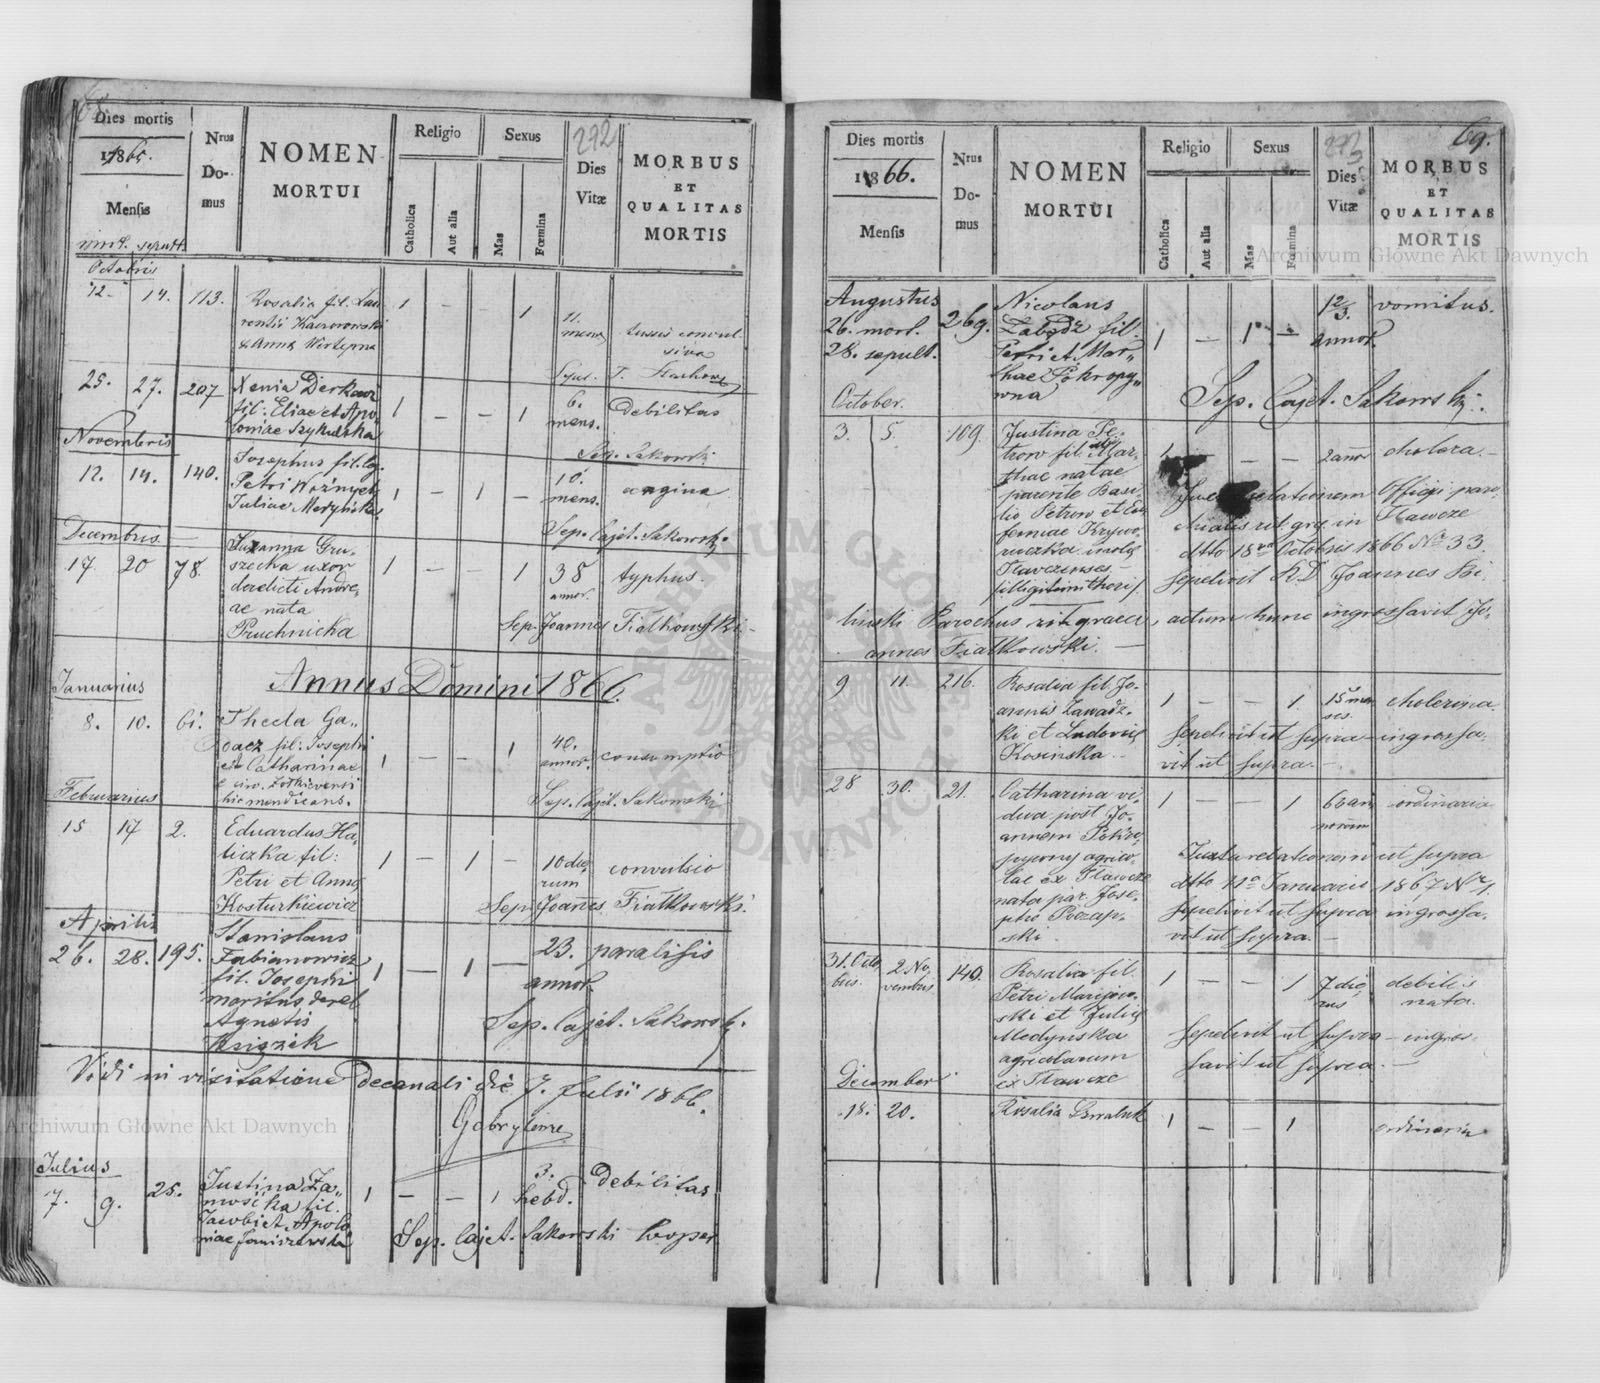 68.
Dies mortis
1865.
Mensis
mort. sepult.
Nrus
Do-
mus
NOMEN
MORTUI
Religio
Catholica
Aut alia
Sexus
Mas
Fœmina
272
Dies
Vitæ
MORBUS
ET
QUALITAS
MORTIS
Octobris
12. 14. 113. Rosalia fil. Lau-
rentii Kaczorowski
& Anna
1 - - 1 11.
mens. tussis convul
siva
Sepul. T.
25. 27. 207 Xenia Derkacz
fil: Eliae et Apo-
loniae
1 - - 1 6.
mens. debilitas
Sep. Sakowski
Novembris
12. 14. 140. Josephus fil. leg.
Petri
Juliae
1 - 1 - 10.
mens. angina
Sep. Cajet. Sakowski.
Decembris
17 20 78. Zuzanna Gru-
szecka uxor
derelicti Andre-
ae nata
Pruchnicka
1 - - 1 38
annor. typhus.
Sep. Joannes Fiałkowski.
Annus Domini 1866.
Januarius
8. 10. 61. Thecla Ga-
dacz fil: Josephi
et Catharinae
e civ. Żołkieviensi
hic mendicans.
1 - - 1 40.
annor. consumptio
Sep. Cajet. Sakowski
Februarius
15 17 2. Eduardus Ha-
liczka fil:
Petri et Anna
Kosturkiewicz
1 - 1 - 10 die-
rum convulsio
Sep. Joannes Fiałkowski.
Aprilis
26. 28. 195. Stanislaus
Fabianowicz
fil. Josephi
maritus derel.
Agnetis
Książek
1 - 1 - 23.
annor. paralisis
Sep. Cajet. Sakowski.
Vidi in visitatione decanali die 7. Julii 1866.
Julius
7. 9. 25. Justina Za-
mościka fil.
Jacobi et Apolo-
niae Janiszewska
1 - - 1 3.
hebd. debilitas
Sep. Cajet. Sakowski Cooper
69.
Dies mortis
1866.
Mensis
Nrus
Do-
mus
NOMEN
MORTUI
Religio
Catholica
Aut alia
Sexus
Mas
Fœmina
273
Dies
Vitæ
MORBUS
ET
QUALITAS
MORTIS
Augustus
26. mort.
28. sepult.
269. Nicolaus
Łabędz fil.
Petri et Mar-
thae Pokropy-
wna
1 - 1 - 1 2/3.
annor. vomitus.
Sep. Cajet. Sakowski.
October.
3. 5. 109. Justina Pe-
trow fil. Mar-
thae natae
parente Basi-
lio Petrow et Eu-
femiae
Tławczenses
illigitimi thori.
1 - - 2 annor cholera.
Juxta relationem Officii paro-
chialis rit. gr. in Tławcze
dtto 18va Octobris 1866 Nr 33.
sepelivit R.D. Joannes Bi-
liński Parochus rit graeci, actum hunc ingrossavit Jo-
annes Fiałkowski.
9 11. 216. Rosalia fil. Jo-
annis Zawadz-
ki et Ludovica
Kosinska
1 - - 1. 15 men
ses. cholerina.
Sepelivit ut supra - ingrossa-
vit ut supra.
28 30. 21. Catharina vi-
dua post Jo-
annem
agrico-
lae ex Tławcze
nata par. Jose-
pho
1 - - 1 60 an
norum ordinaria
Juxta relationem ut supra
dtto 11a Januarii 1867 Nr 1.
Sepelivit ut supra ingrossa-
vit ut supra.
31. Octo
bris. 2. No-
vembris 140. Rosalia fil.
Petri
ski et Julia
Medynska
agricolarum
ex Tławcze
1 - - 1 7 die
rus debilis
nata.
Sepelivit ut supra - ingros-
savit ut supra.
December
18. 20. Rosalia
1 - - 1 ordinaria
Archiwum Główne Akt Dawnych
Archiwum Główne Akt Dawnych
ARCHIWUM GŁÓWNE AKT DAWNYCH